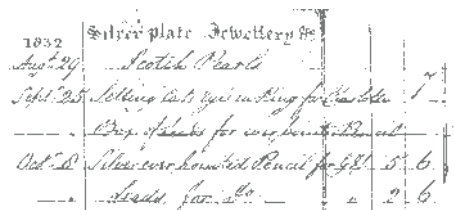 1832 Silver plate Jewellery &c
Augt 29 Scotch Pearls
Sept 25 Setting Cats eyes in Ring for 7
— . Box of Leads for ever pointed Pencil
Octr 8 Silver ever pointed Pencil for 5 6
— . Leads for Do . 2 6